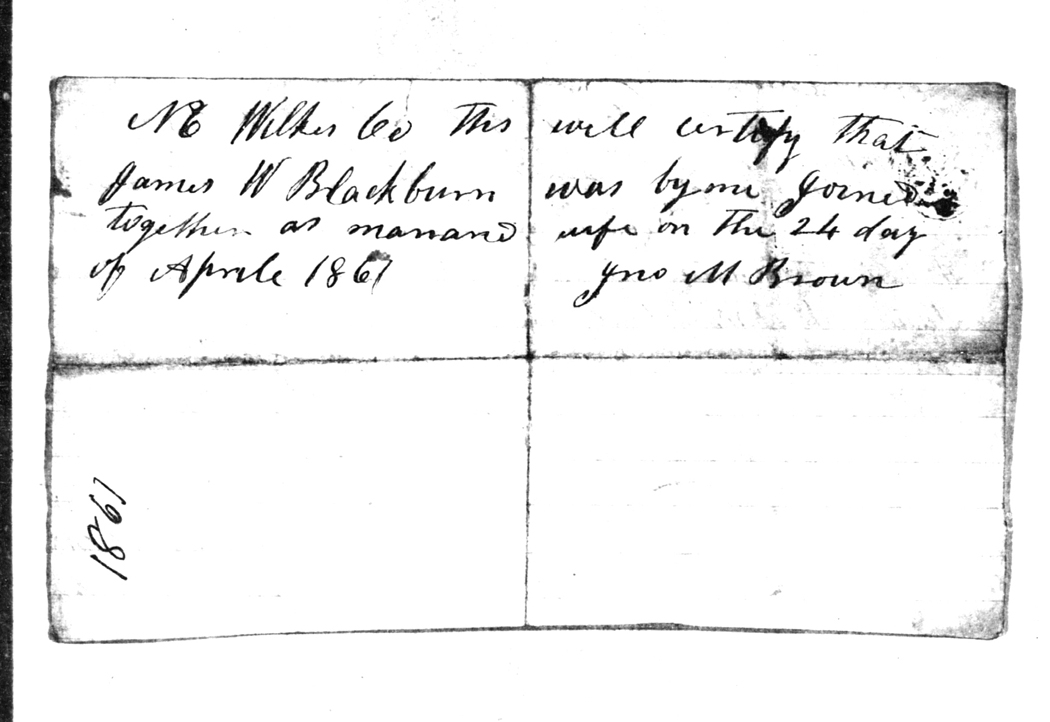 NC Wilkes Co this will certify that
James W Blackburn was by me Joined
together as manand wife on the 24 day
of Aprile 1861
Jno M Brown
1861